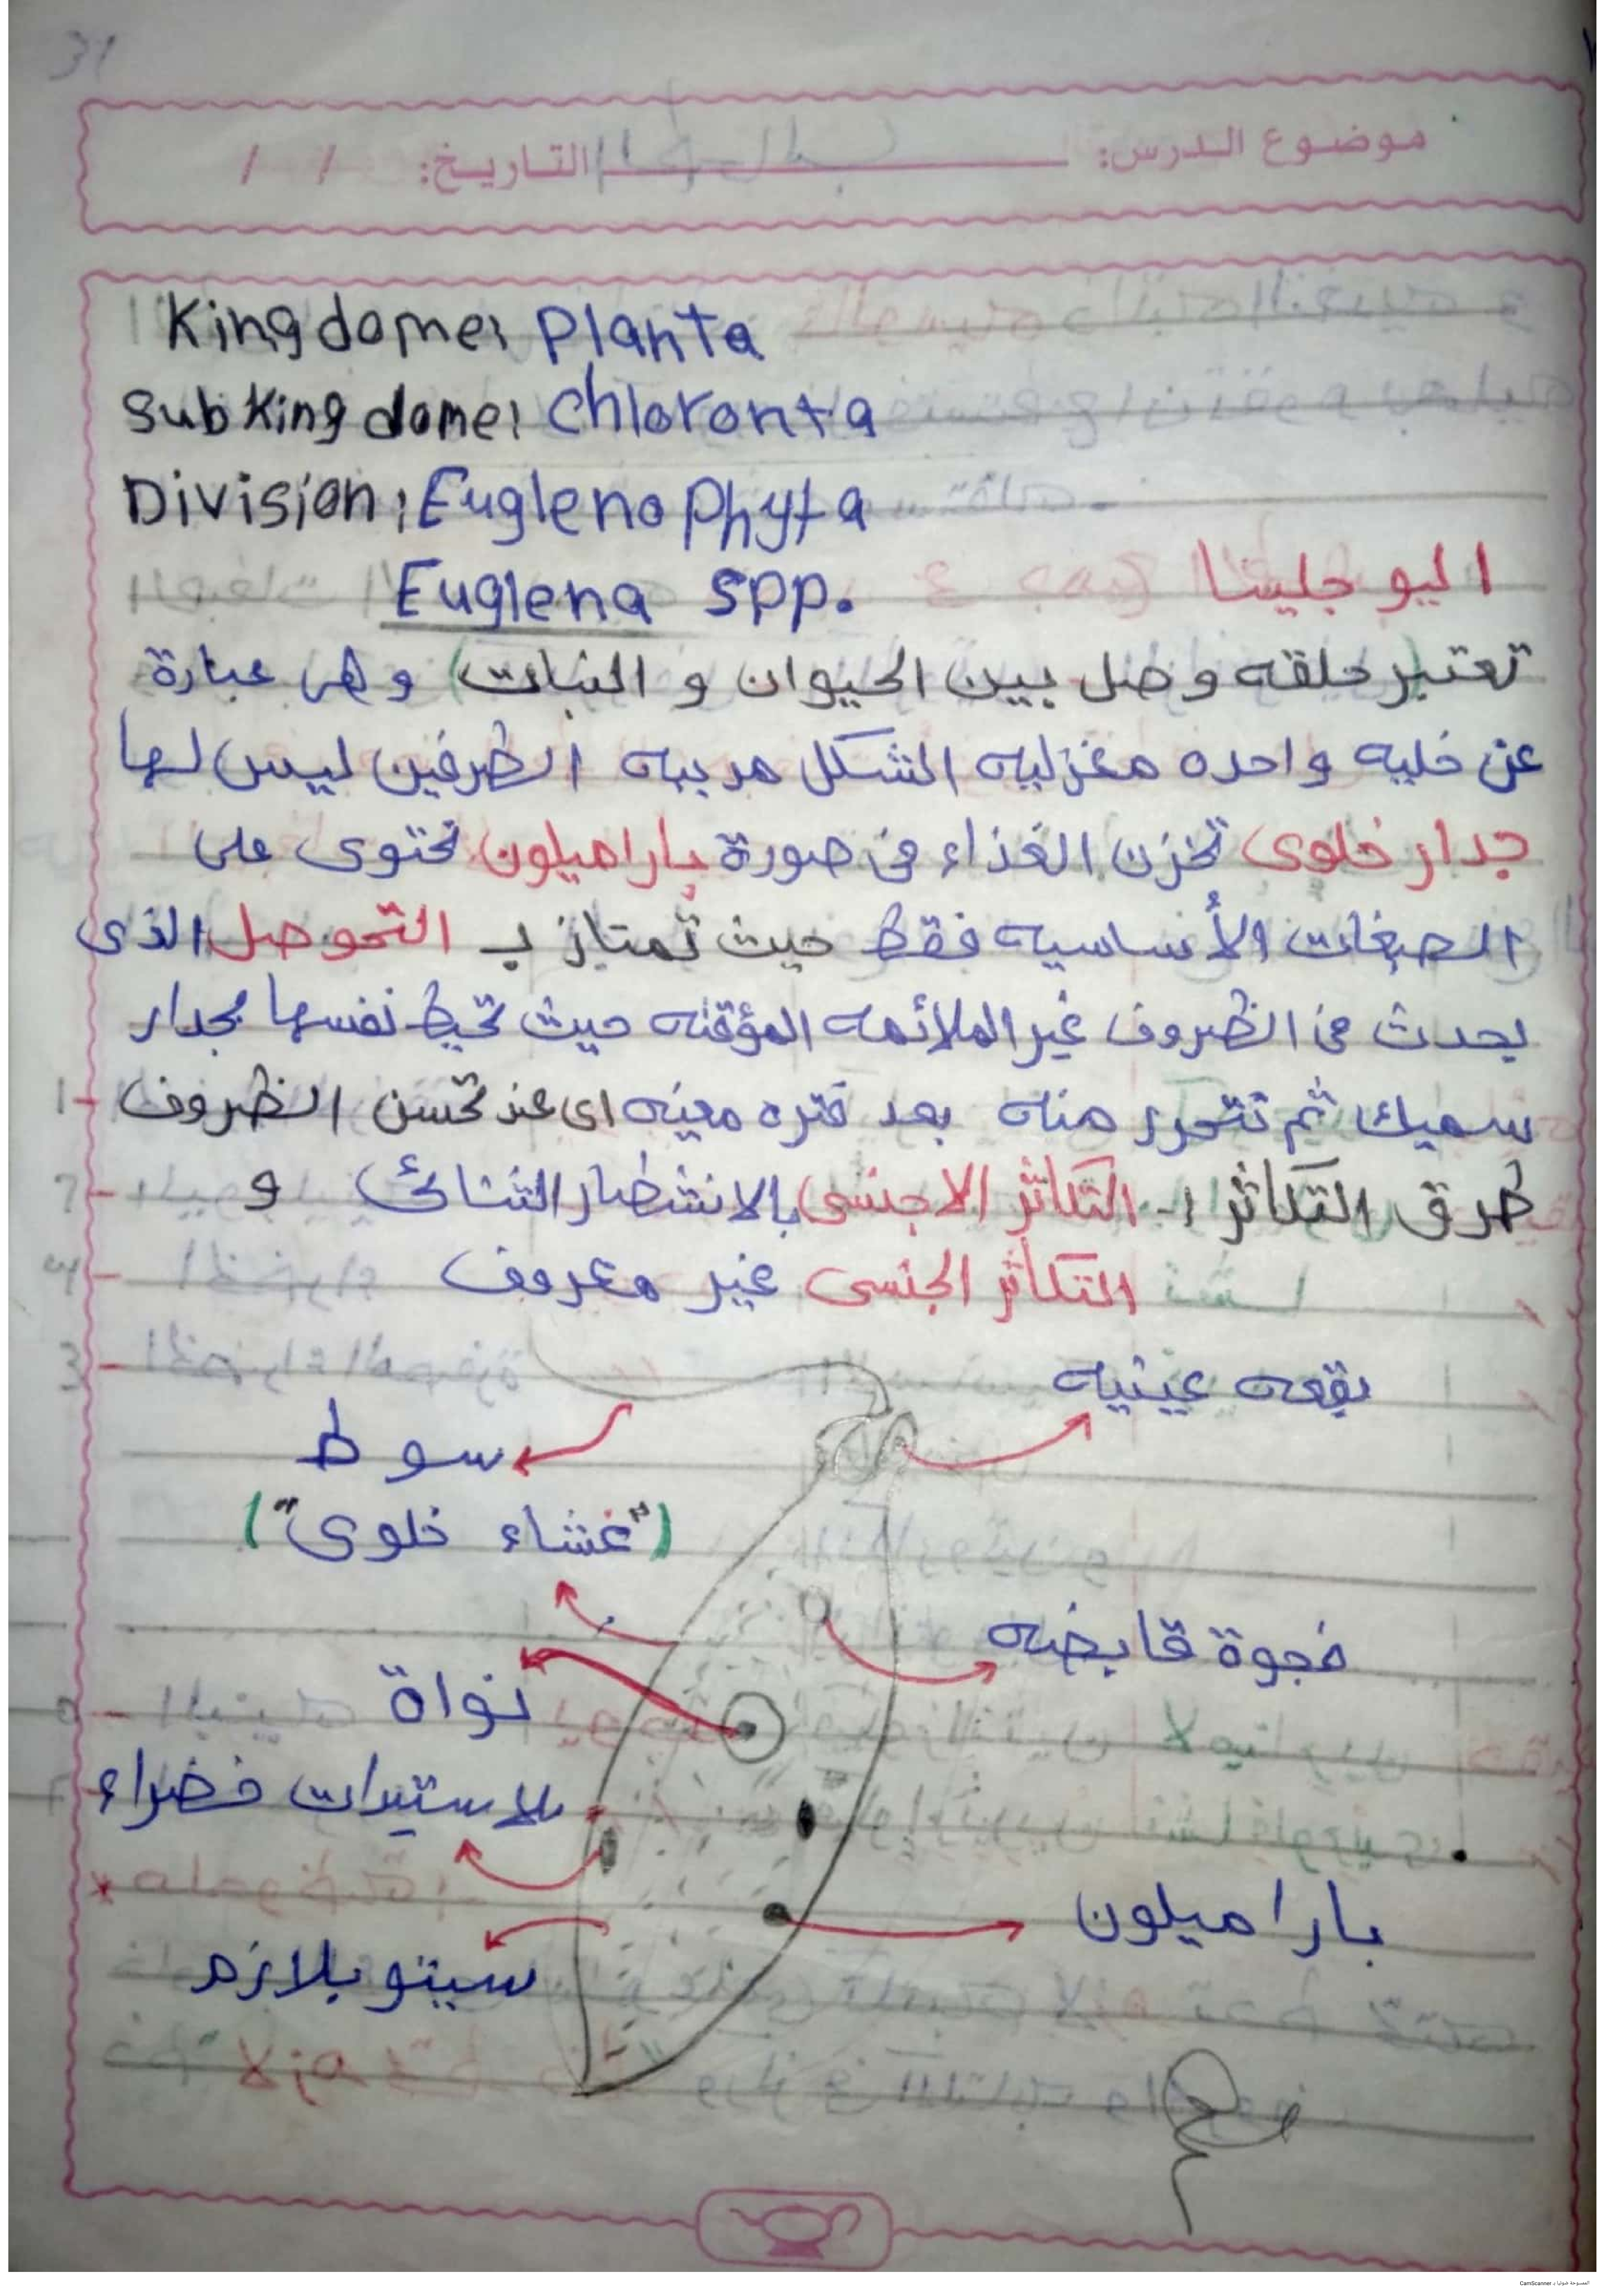 موضوع الدرس: التاريخ: / /
Kingdome: Planta
Subkingdome: Chloronta
Division: Euglenophyta
اليوجلينا Euglena spp.
تعتبر حلقه وصل بين الحيوان و النبات) وهى عبارة
عن خليه واحده مغزليه الشكل مدببه الطرفين ليس لها
جدار خلوى تخزن الغذاء فى صورة باراميلون تحتوى على
الصبغات الأساسيه فقط حيث تمتاز بـ التحوصل الذى
يحدث فى الظروف غير الملائمه المؤقته حيث تحيط نفسها بجدار
سميك ثم تتحرر منه بعد فتره معينه اى عند تحسن الظروف
طرق التكاثر :- التكاثر الاجنسى بالانشطار الثنائى و
التكاثر الجنسى غير معروف
بقعه عينيه
سوط
("غشاء خلوى")
فجوة قابضه
نواة
بلاستيدات خضراء
باراميلون
سيتوبلازم
الممسوحة ضوئيا بـ CamScanner